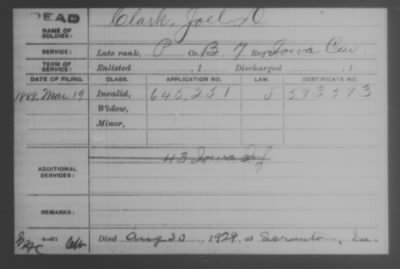 DEAD
NAME OF SOLDIER: Clark, Joel
SERVICE: Late rank, P Co. B. 7 Reg Iowa Cav.
TERM OF SERVICE: Enlisted , 1 Discharged , 1
DATE OF FILING. CLASS. APPLICATION NO. LAW. CERTIFICATE NO.
Mar 19 Invalid, 645,251 J 593593
Widow,
Minor,
ADDITIONAL SERVICES: 43 Iowa Inf
REMARKS:
Died Aug 30, 1929, at Scranton, Ia.